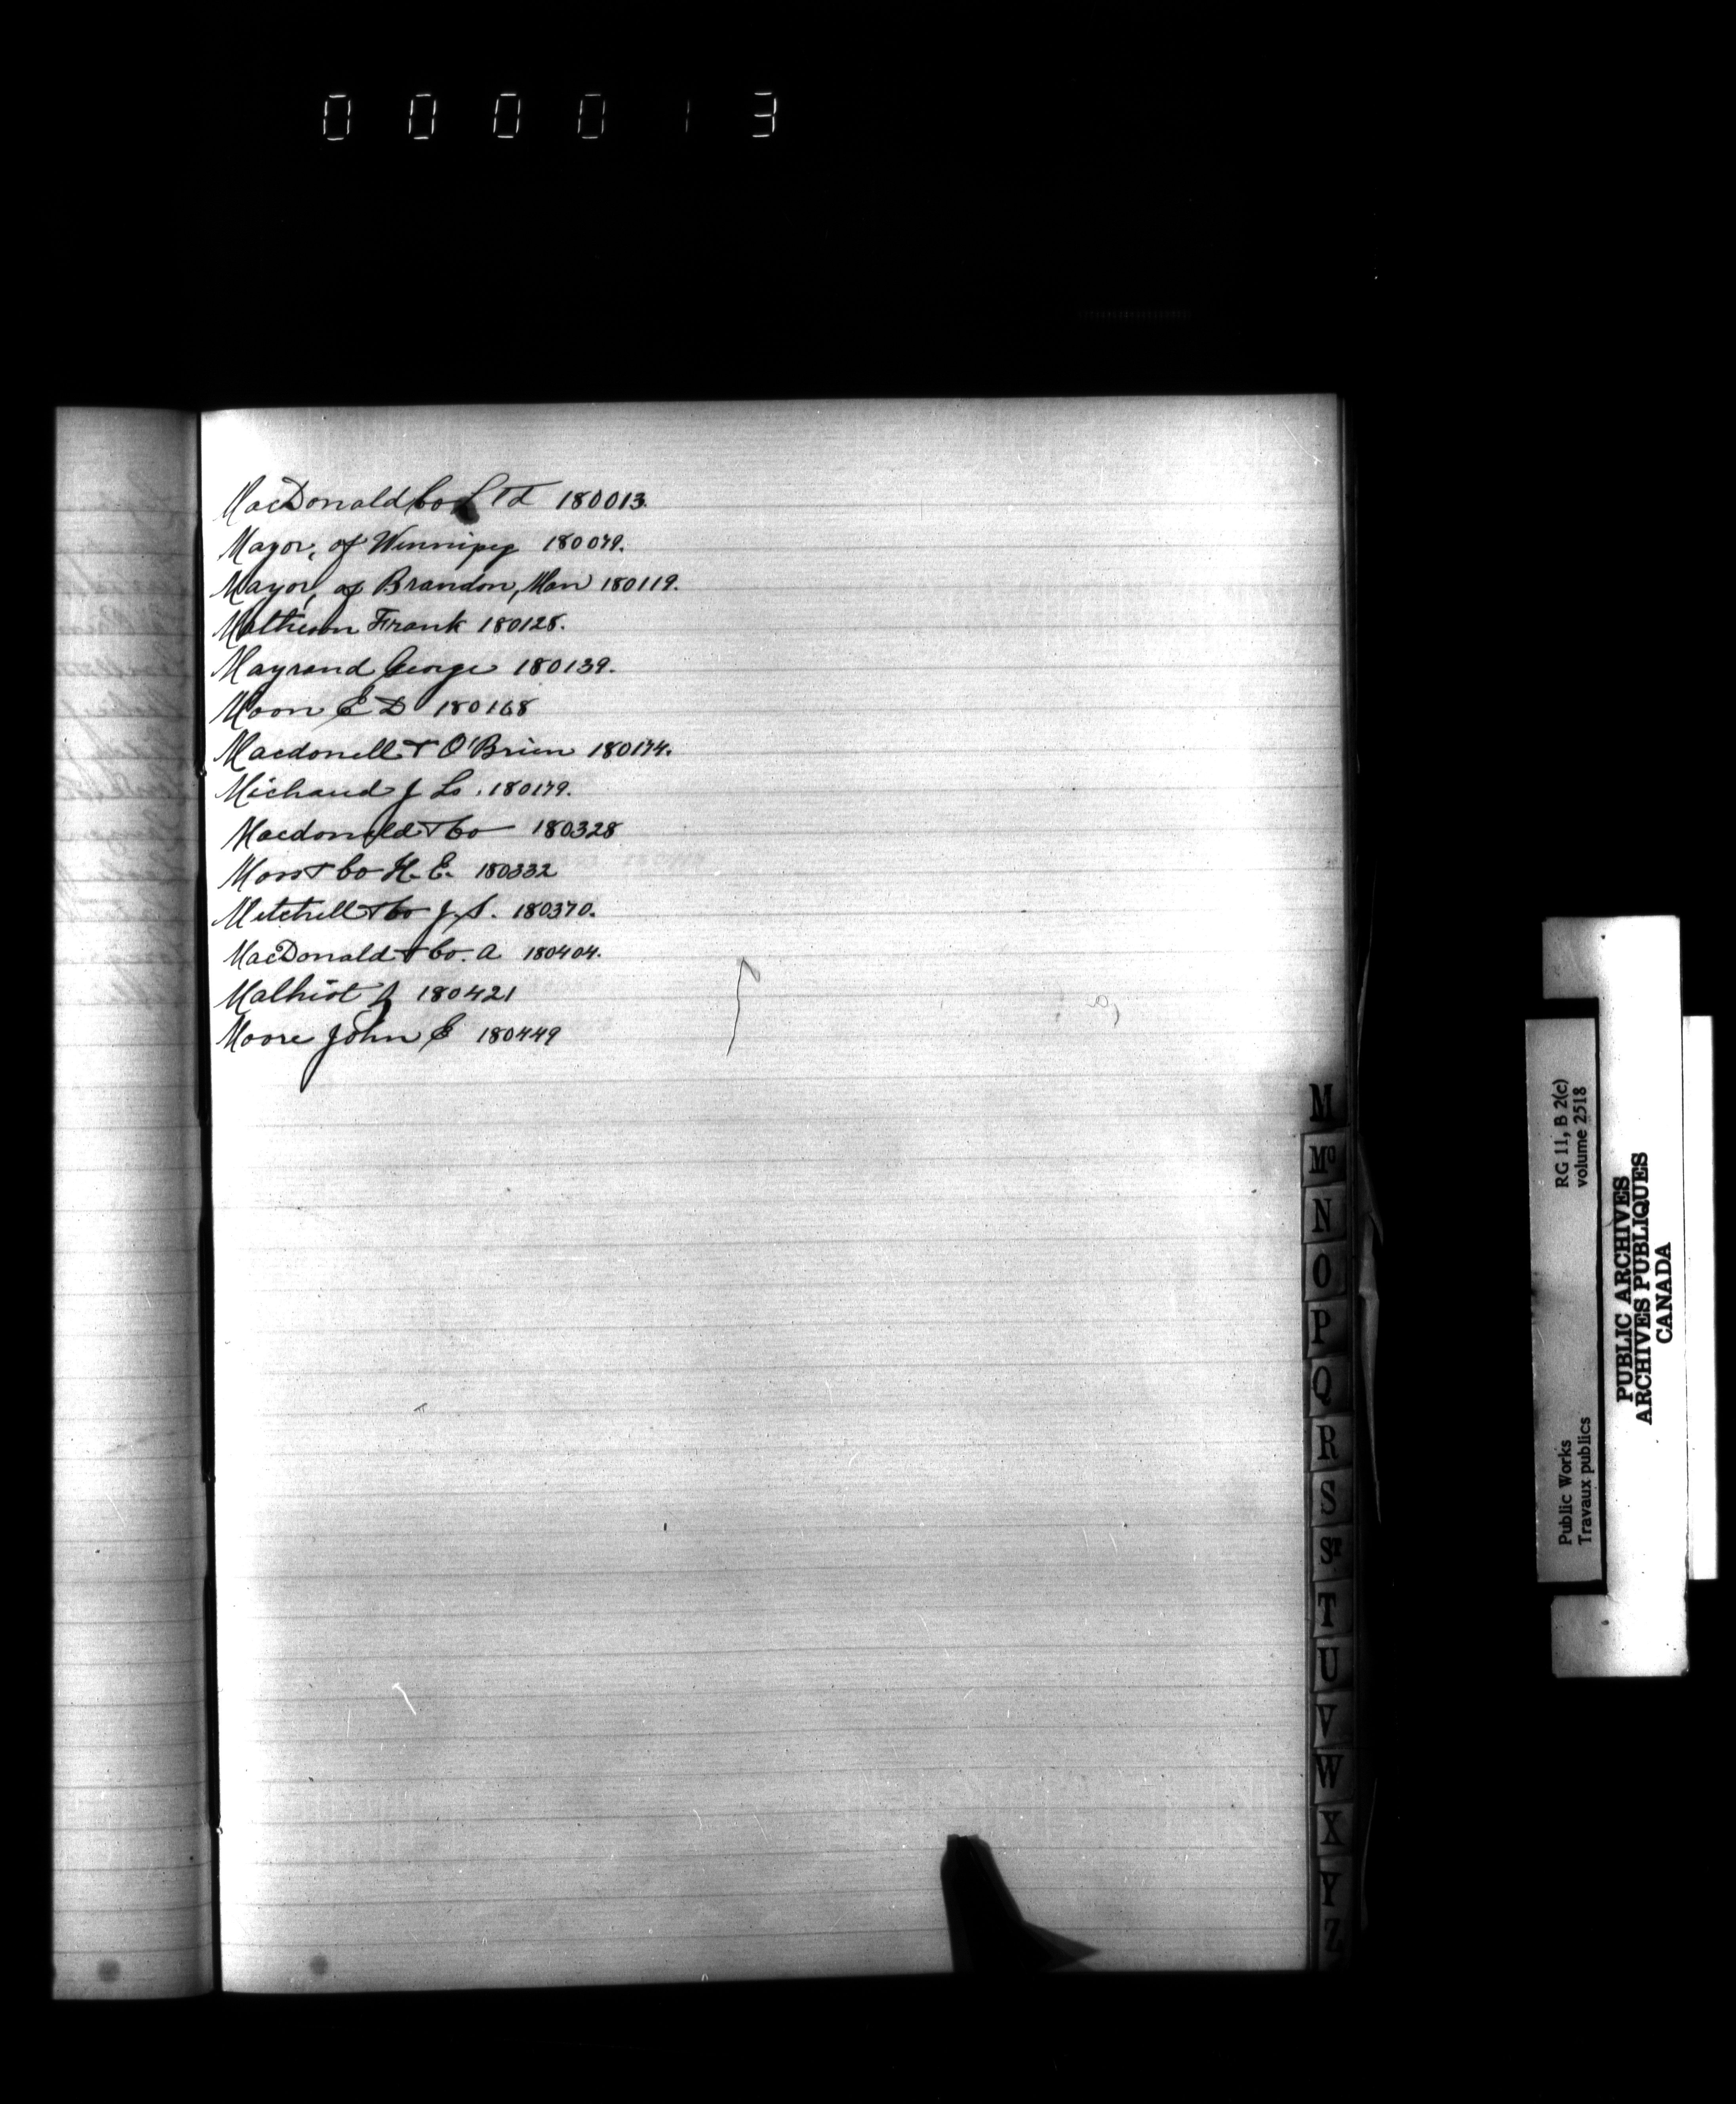 000013
MacDonald Co LTd 180013.
Mayor, of Winnipeg 180079.
Mayor, of Brandon, Man 180119.
Matheson Frank 180128.
Mayrand George 180139.
Moon E D 180168
Macdonell & O'Brien 180174.
Michaud J L. 180179.
Macdonald & Co 180328
Moss & Co H. E. 180332
Mitchell & Co J. S. 180370.
MacDonald & Co. A 180404.
Malhiot 180421
Moore John E 180449
M
Mc
N
O
P
Q
R
S
ST
T
U
V
W
X
Y
Z
Public Works
Travaux publics
RG 11, B 2(c)
volume 2518
PUBLIC ARCHIVES
ARCHIVES PUBLIQUES
CANADA